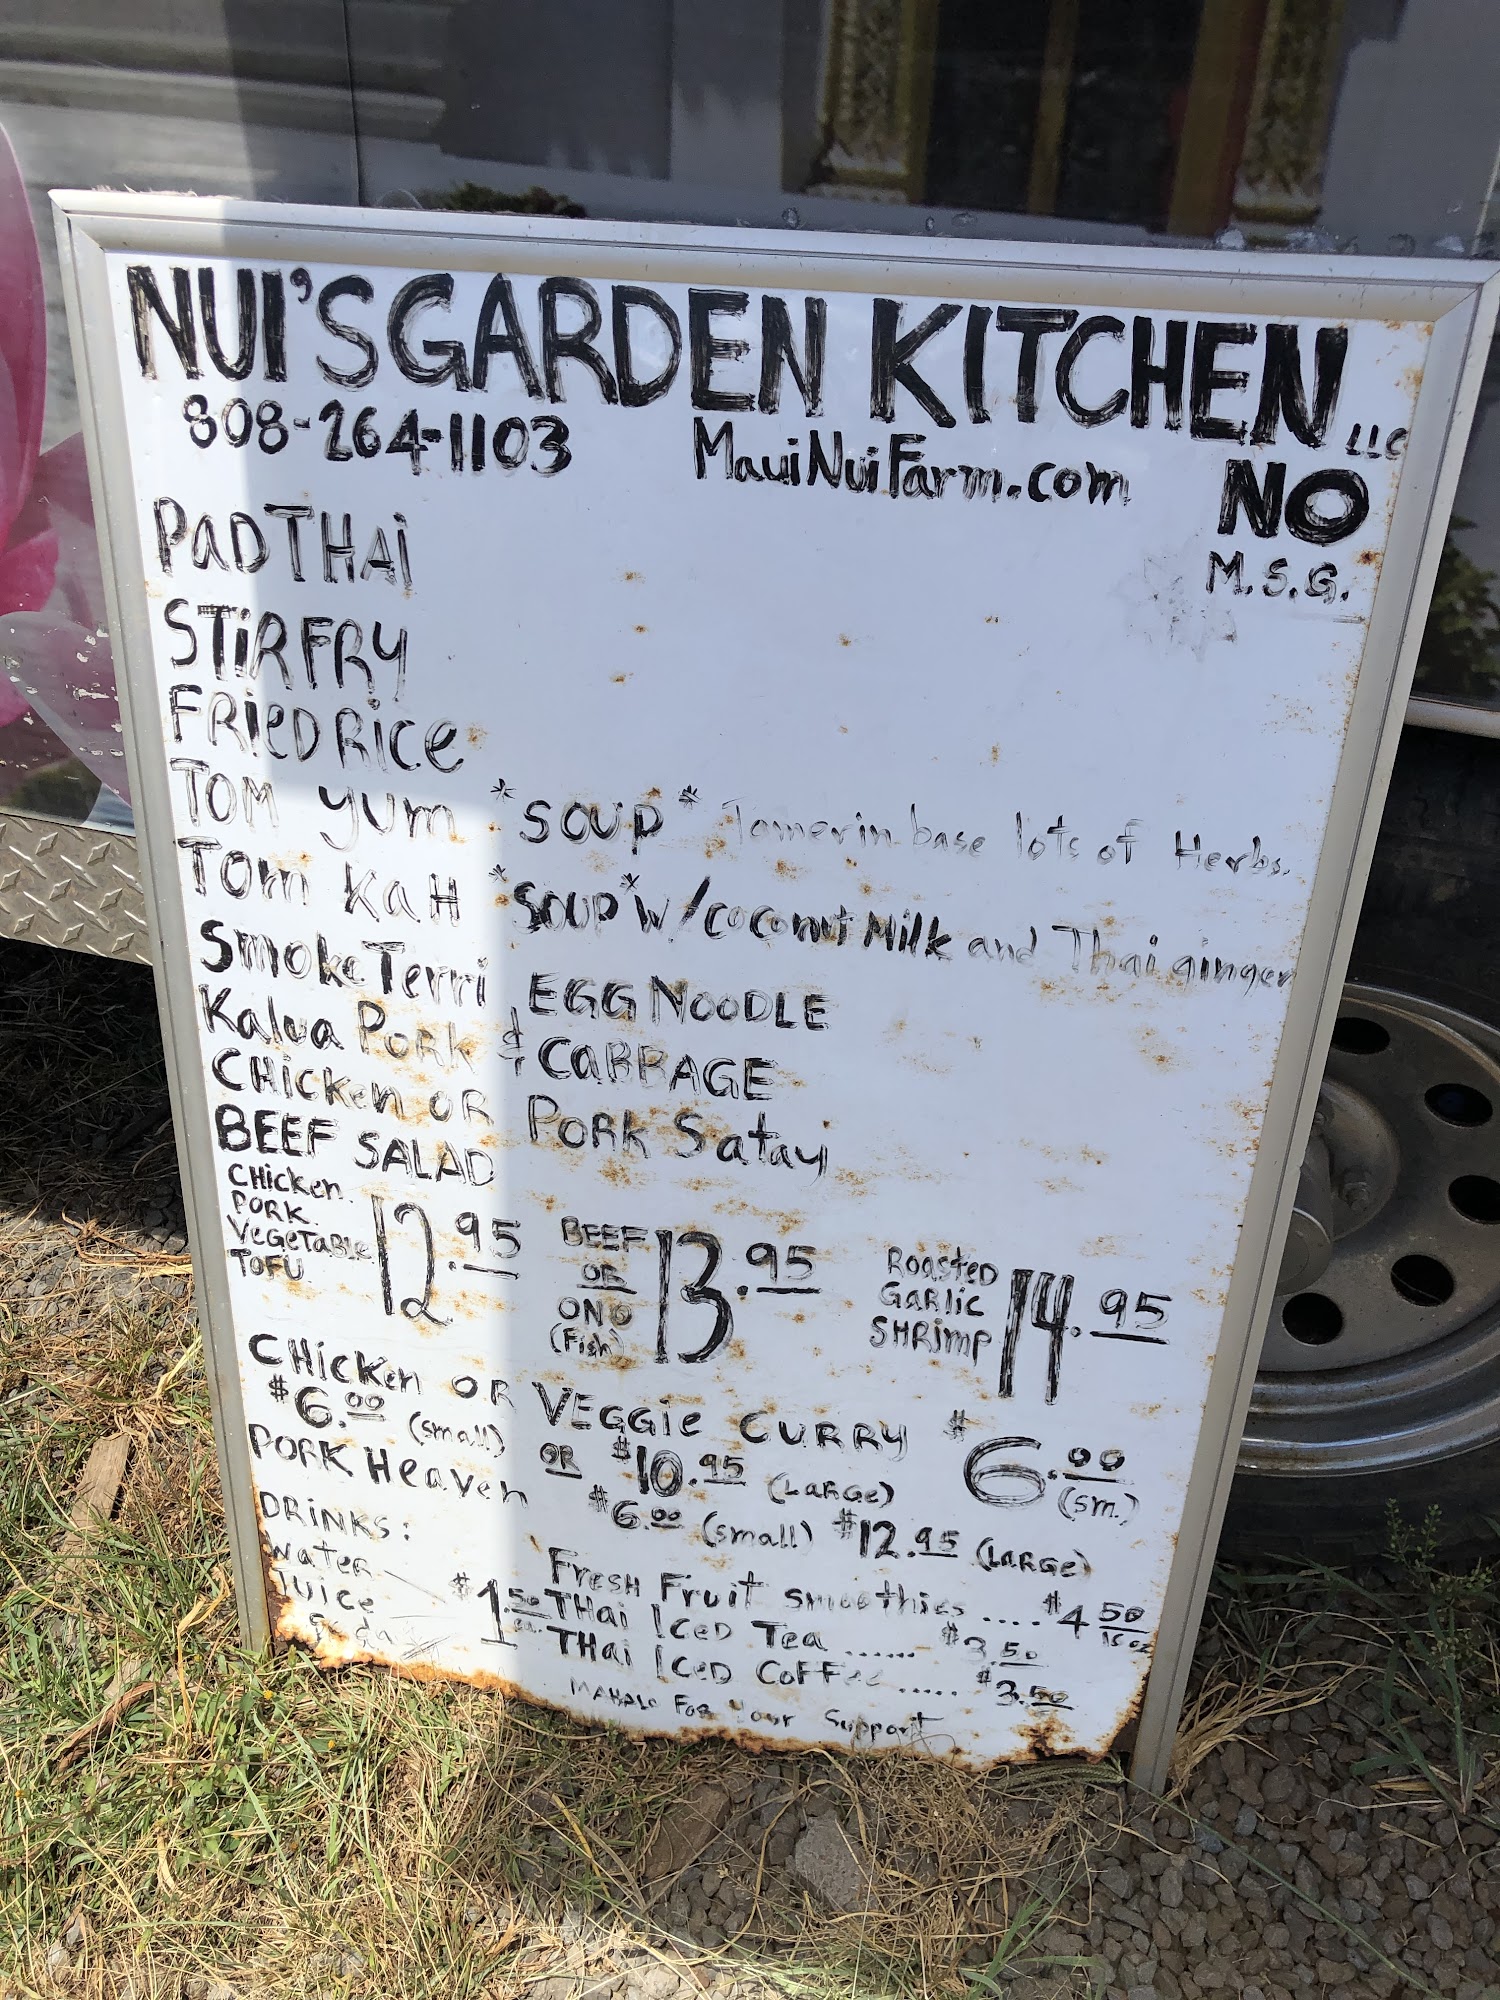 NUI'S GARDEN KITCHEN LLC
808-264-1103 MauiNuiFarm.com NO
M.S.G.
PaD THAi
STiR FRY
FRieD RiCe
TOM yum *SOUP* Tamerin base lots of Herbs.
TOm KaH *SOUP* w/ coconut Milk and Thai ginger
Smoke Terri EGG NOODLE
Kalua Pork & CaBBAGE
CHicken OR Pork Satay
BEEF SALAD
CHicken
PORK
VeGeTaBle
TOFU
12.95
BEEF
OR
ONO
(Fish)
13.95
ROasteD
GaRLic
SHRimp
14.95
CHicken OR VEGGie CURRY $6.00 (sm.)
$6.00 (small) OR $10.95 (LaRGe)
PORK Heaven $6.00 (small) $12.95 (LaRGe)
DRiNKS:
Water
Juice
Soda
$1.50 ea.
FResH Fruit smoothies .... $4.50 16 oz
THai IceD Tea ...... $3.50
THai IceD CoFFee ..... $3.50
MaHalo FoR Your Support